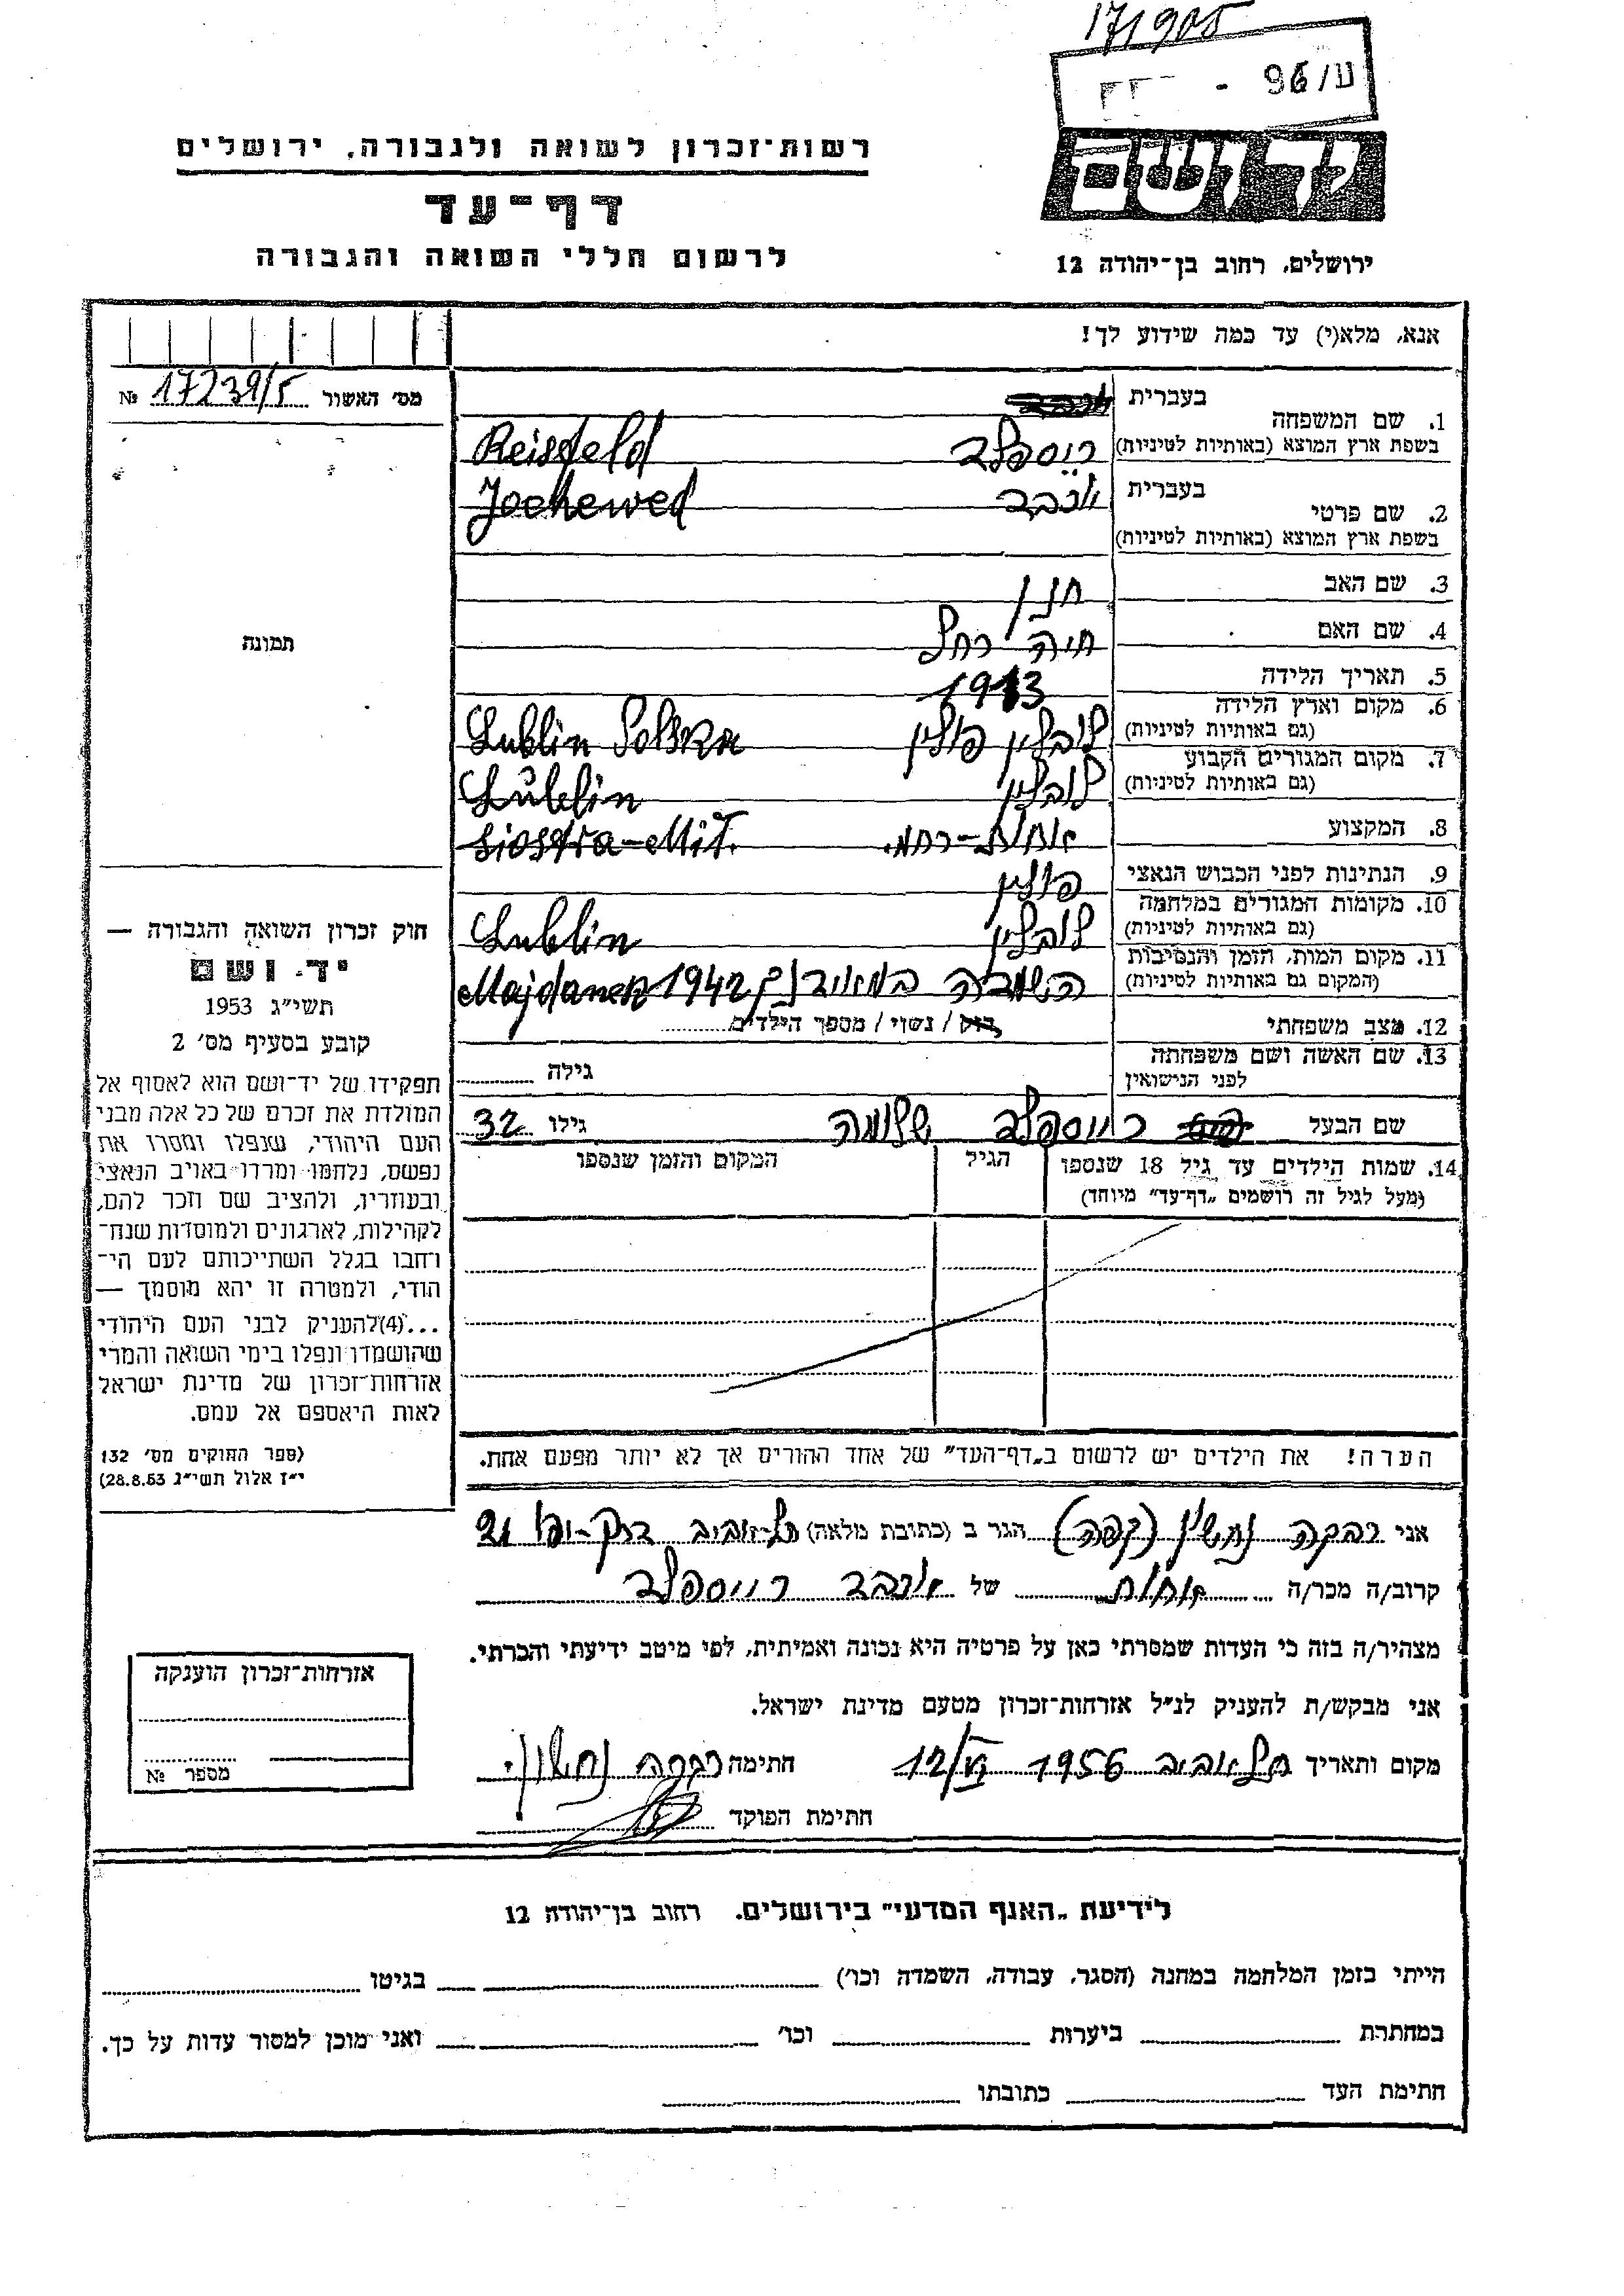 171905
ע/96 -
רשות־זכרון לשואה ולגבורה, ירושלים
יד ושם
דף־עד
לרשום חללי השואה והגבורה
ירושלים, רחוב בן־יהודה 12
אנא, מלא(י) עד כמה שידוע לך!
מס׳ האשור 17239/5 №
תמונה
חוק זכרון השואה והגבורה —
יד ושם
תשי״ג 1953
קובע בסעיף מס׳ 2
תפקידו של יד־ושם הוא לאסוף אל
המולדת את זכרם של כל אלה מבני
העם היהודי, שנפלו ומסרו את
נפשם, נלחמו ומרדו באויב הנאצי
ובעוזריו, ולהציב שם וזכר להם,
לקהילות, לארגונים ולמוסדות שנח־
רחבו בגלל השתייכותם לעם הי־
הודי, ולמטרה זו יהא מוסמך —
...(4)להעניק לבני העם היהודי
שהושמדו ונפלו בימי השואה והמרי
אזרחות־זכרון של מדינת ישראל
לאות היאספם אל עמם.
(ספר החוקים מס׳ 132
י״ז אלול תשי״ג 28.8.53)
1. שם המשפחה
בעברית
בשפת ארץ המוצא (באותיות לטיניות) רייספלד Reisfeld
2. שם פרטי
בעברית יוכבד Jochewed
בשפת ארץ המוצא (באותיות לטיניות)
3. שם האב חנן
4. שם האם חיה רחל
5. תאריך הלידה 1913
6. מקום וארץ הלידה
(גם באותיות לטיניות) לובלין פולין Lublin Polska
7. מקום המגורים הקבוע
(גם באותיות לטיניות) לובלין Lublin
8. המקצוע אחות-רחמי. Siostra-Mił.
9. הנתינות לפני הכבוש הנאצי פולין
10. מקומות המגורים במלחמה
(גם באותיות לטיניות) לובלין Lublin
11. מקום המות, הזמן והנסיבות
(המקום גם באותיות לטיניות) השמדה במאידנק Majdanek 1942
12. מצב משפחתי רוק / נשוי / מספר הילדים
13. שם האשה ושם משפחתה
לפני הנישואין גילה
שם הבעל רייספלד שלומה גילו 32
14. שמות הילדים עד גיל 18 שנספו הגיל המקום והזמן שנספו
(מעל לגיל זה רושמים „דף־עד״ מיוחד)
הערה! את הילדים יש לרשום ב„דף־העד״ של אחד ההורים אך לא יותר מפעם אחת.
אני רבקה נחשון (קפה) הגר ב (כתובת מלאה) תל-אביב דרך-יפו 21
קרוב/ה מכר/ה אחות של יוכבד רייספלד
מצהיר/ה בזה כי העדות שמסרתי כאן על פרטיה היא נכונה ואמיתית, לפי מיטב ידיעתי והכרתי.
אני מבקש/ת להעניק לנ״ל אזרחות־זכרון מטעם מדינת ישראל.
מקום ותאריך תל אביב 1956 12/VI חתימה רבקה נחשון
חתימת הפוקד
אזרחות־זכרון הוענקה
מספר №
לידיעת „האגף המדעי״ בירושלים, רחוב בן־יהודה 12
הייתי בזמן המלחמה במחנה (הסגר, עבודה, השמדה וכו׳) בגיטו
במחתרת ביערות וכו׳ ואני מוכן למסור עדות על כך.
חתימת העד כתובתו